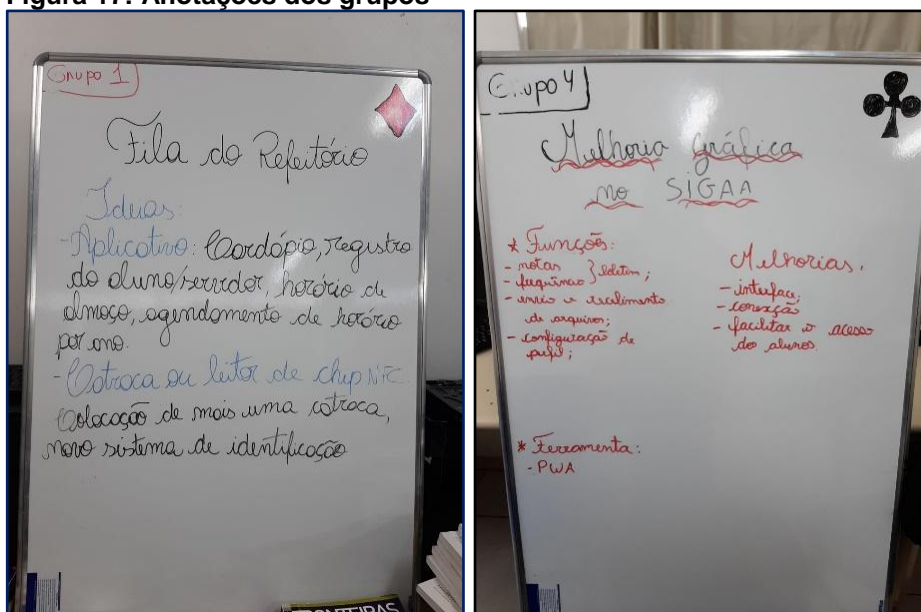 Figura 17: Anotações dos grupos
Grupo 1
Fila do Refeitório
Ideias:
-Aplicativo: Cardápio, registro
do aluno/servidor, horário de
almoço, agendamento de horário
por ano.
-Catraca ou leitor de chip NFC.
Colocação de mais uma catraca,
novo sistema de identificação
Grupo 4
Melhoria gráfica
no SIGAA
* Funções:
- notas } boletim;
- frequência
- envio e recebimento
de arquivos;
- configuração de
perfil;
Melhorias.
- interface;
- conexção
- facilitar o acesso
dos alunos.
* Ferramenta:
- PWA